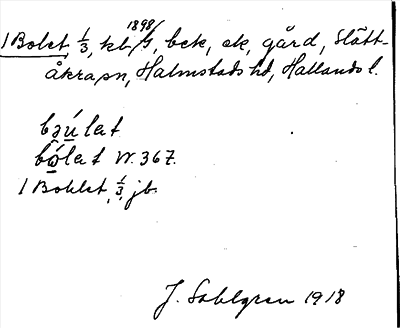 1 Bolet, 1/3, kb 1898/5, bck, ek, gård, Slätt-
åkra sn, Halmstads hd, Hallands l.
bəúlət
bω̂́lət W. 367.
1 Bohlet, 1/3, jb.
J. Sahlgren 1918